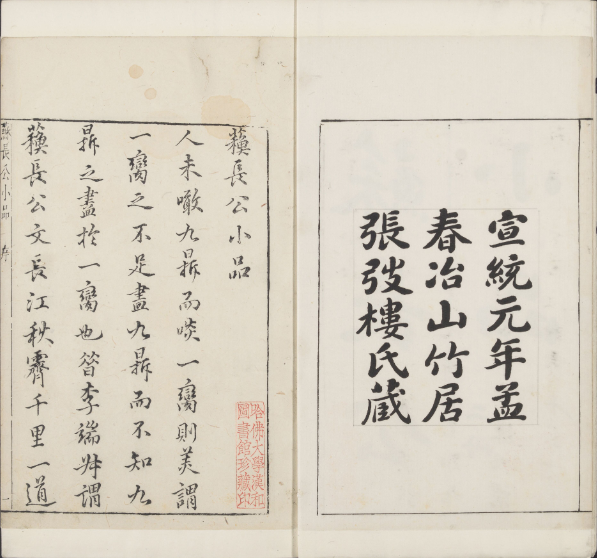 宣統元年孟
春冶山竹居
張弢樓氏藏
蘓長公小品
人未噉九鼎而啖一臠則美謂
一臠之不足盡九鼎而不知九
鼎之盡於一臠也昔李端叔謂
蘓長公文長江秋霽千里一道
蘓長公小品 序 一
哈佛大學漢和
圖書館珍藏印